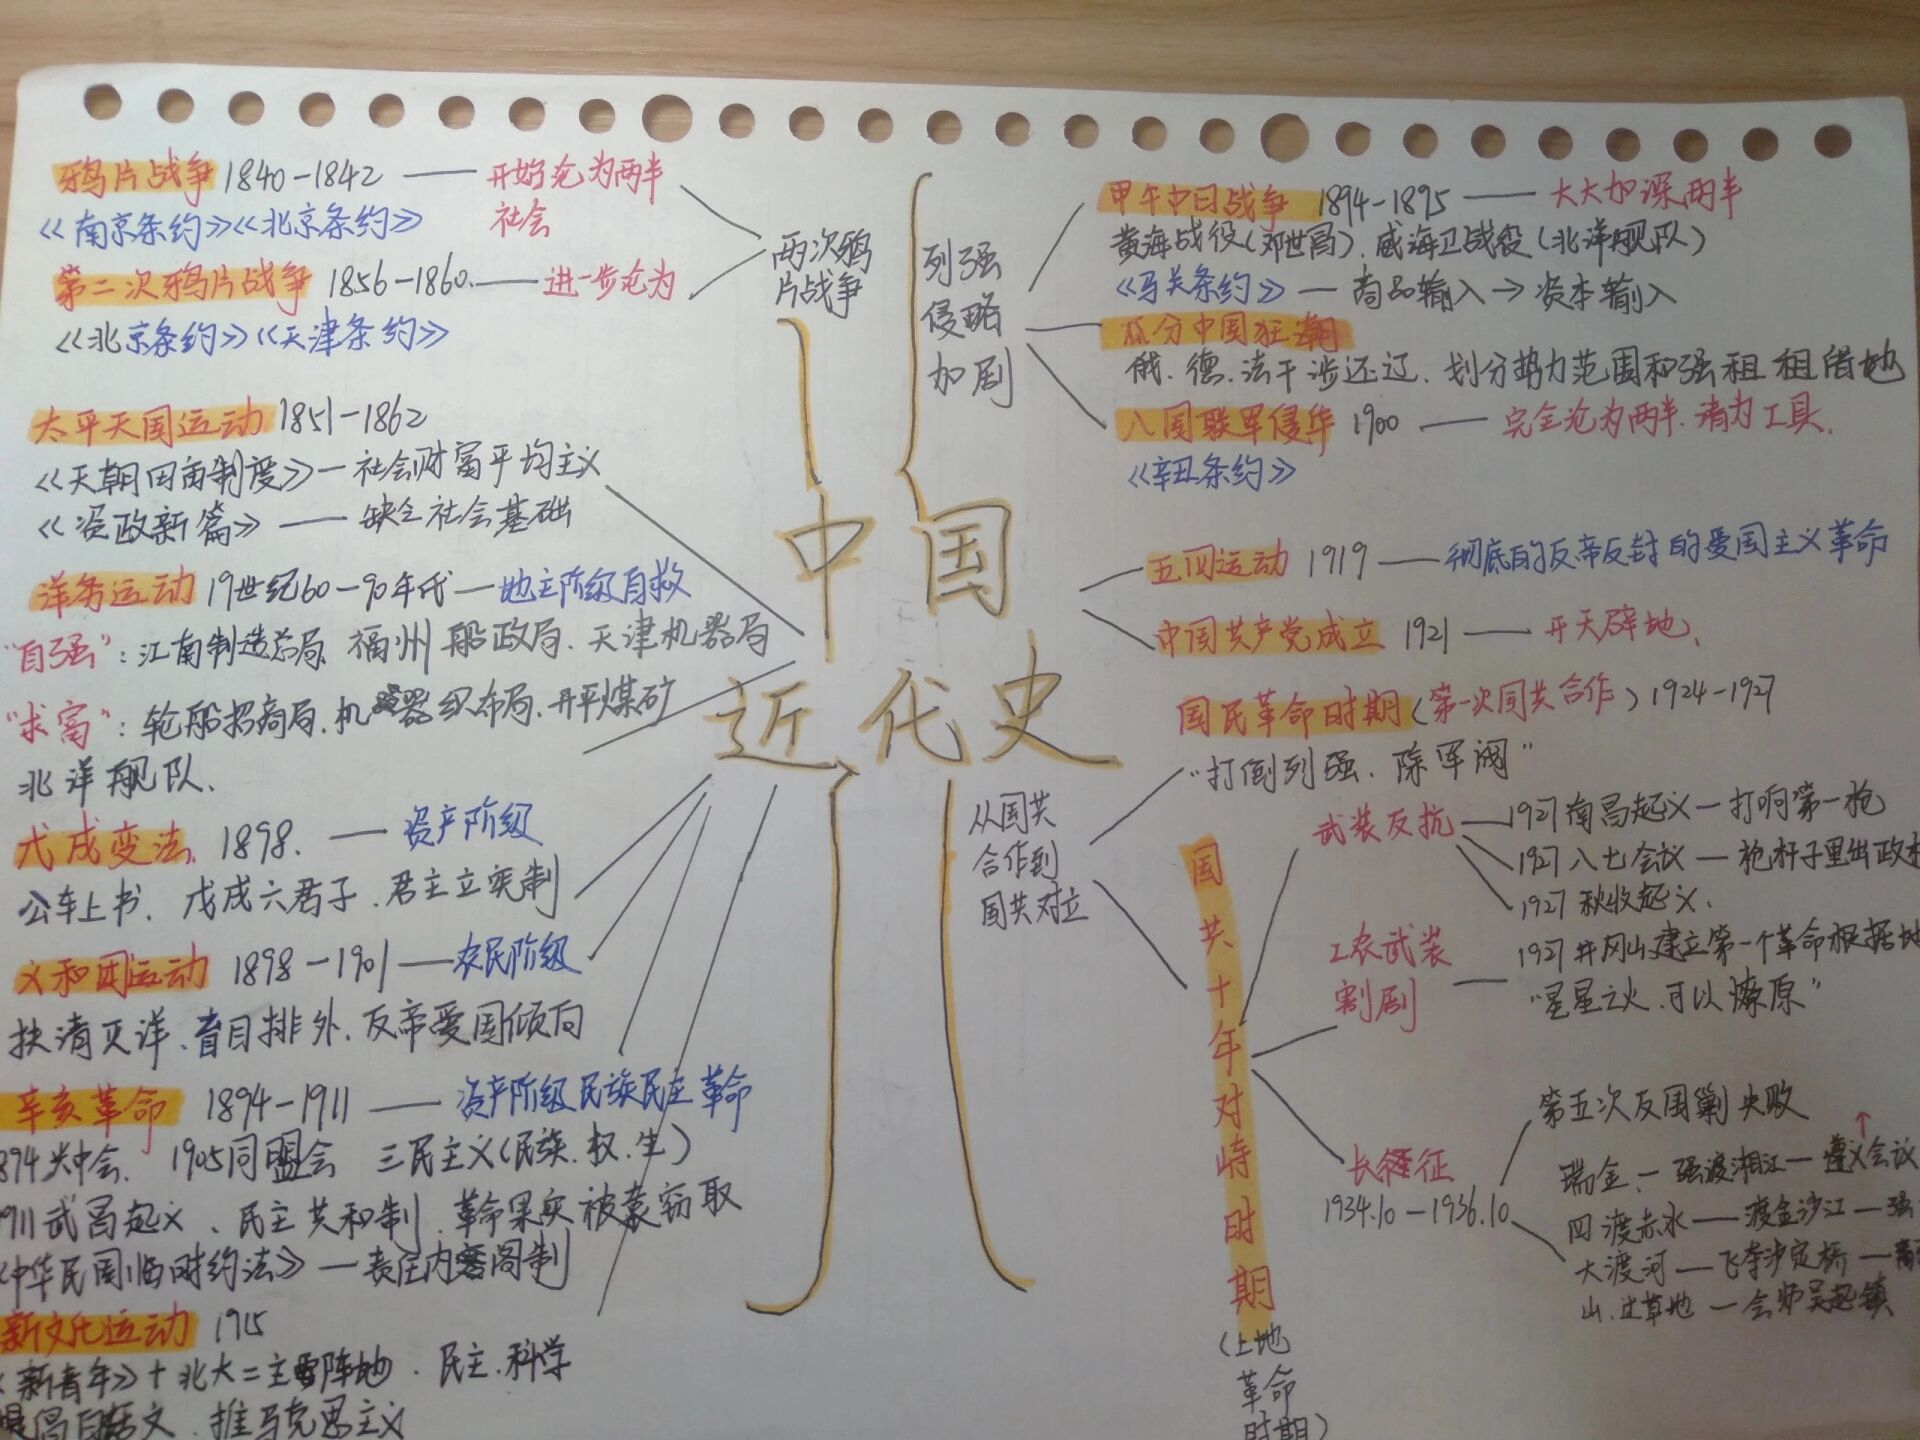 鸦片战争 1840-1842 —— 开始沦为两半
社会
《南京条约》《北京条约》
第二次鸦片战争 1856-1860. —— 进一步沦为
《北京条约》《天津条约》
两次鸦
片战争
太平天国运动 1851-1862
《天朝田亩制度》—社会财富平均主义
《资政新篇》—— 缺乏社会基础
洋务运动 19世纪60-90年代—地主阶级自救
"自强"：江南制造总局、福州船政局、天津机器局
"求富"：轮船招商局、机器织布局、开平煤矿
北洋舰队、
戊戌变法、1898. —— 资产阶级
公车上书、戊戌六君子、君主立宪制
义和团运动 1898-1901——农民阶级
扶清灭洋、盲目排外、反帝爱国倾向
辛亥革命 1894-1911 —— 资产阶级民族民主革命
894兴中会、1905同盟会 三民主义(民族、权、生)
911武昌起义、民主共和制、革命果实被袁窃取
《中华民国临时约法》—责任内阁制
新文化运动 1915
《新青年》+北大=主要阵地、民主、科学
提倡白话文、推马克思主义
中国
近代史
列强
侵略
加剧
甲午中日战争 1894-1895 —— 大大加深两半
黄海战役(邓世昌)、威海卫战役(北洋舰队)
《马关条约》—商品输入→资本输入
瓜分中国狂潮
俄、德、法干涉还辽、划分势力范围和强租租借地
八国联军侵华 1900 —— 完全沦为两半、清为工具、
《辛丑条约》
五四运动 1919 —— 彻底的反帝反封的爱国主义革命
中国共产党成立 1921 —— 开天辟地、
从国共
合作到
国共对立
国民革命时期(第一次国共合作) 1924-1927
"打倒列强、除军阀"
国共十年对峙时期
(土地
革命
时期)
武装反抗
1927南昌起义—打响第一枪
1927八七会议—枪杆子里出政权
1927秋收起义、
工农武装
割剧
1927井冈山建立第一个革命根据地
"星星之火、可以燎原"
长征
1934.10-1936.10
第五次反围剿失败
瑞金、—强渡湘江—遵义会议
四渡赤水——渡金沙江—强
大渡河——飞夺泸定桥—
山、过草地 —会师吴起镇